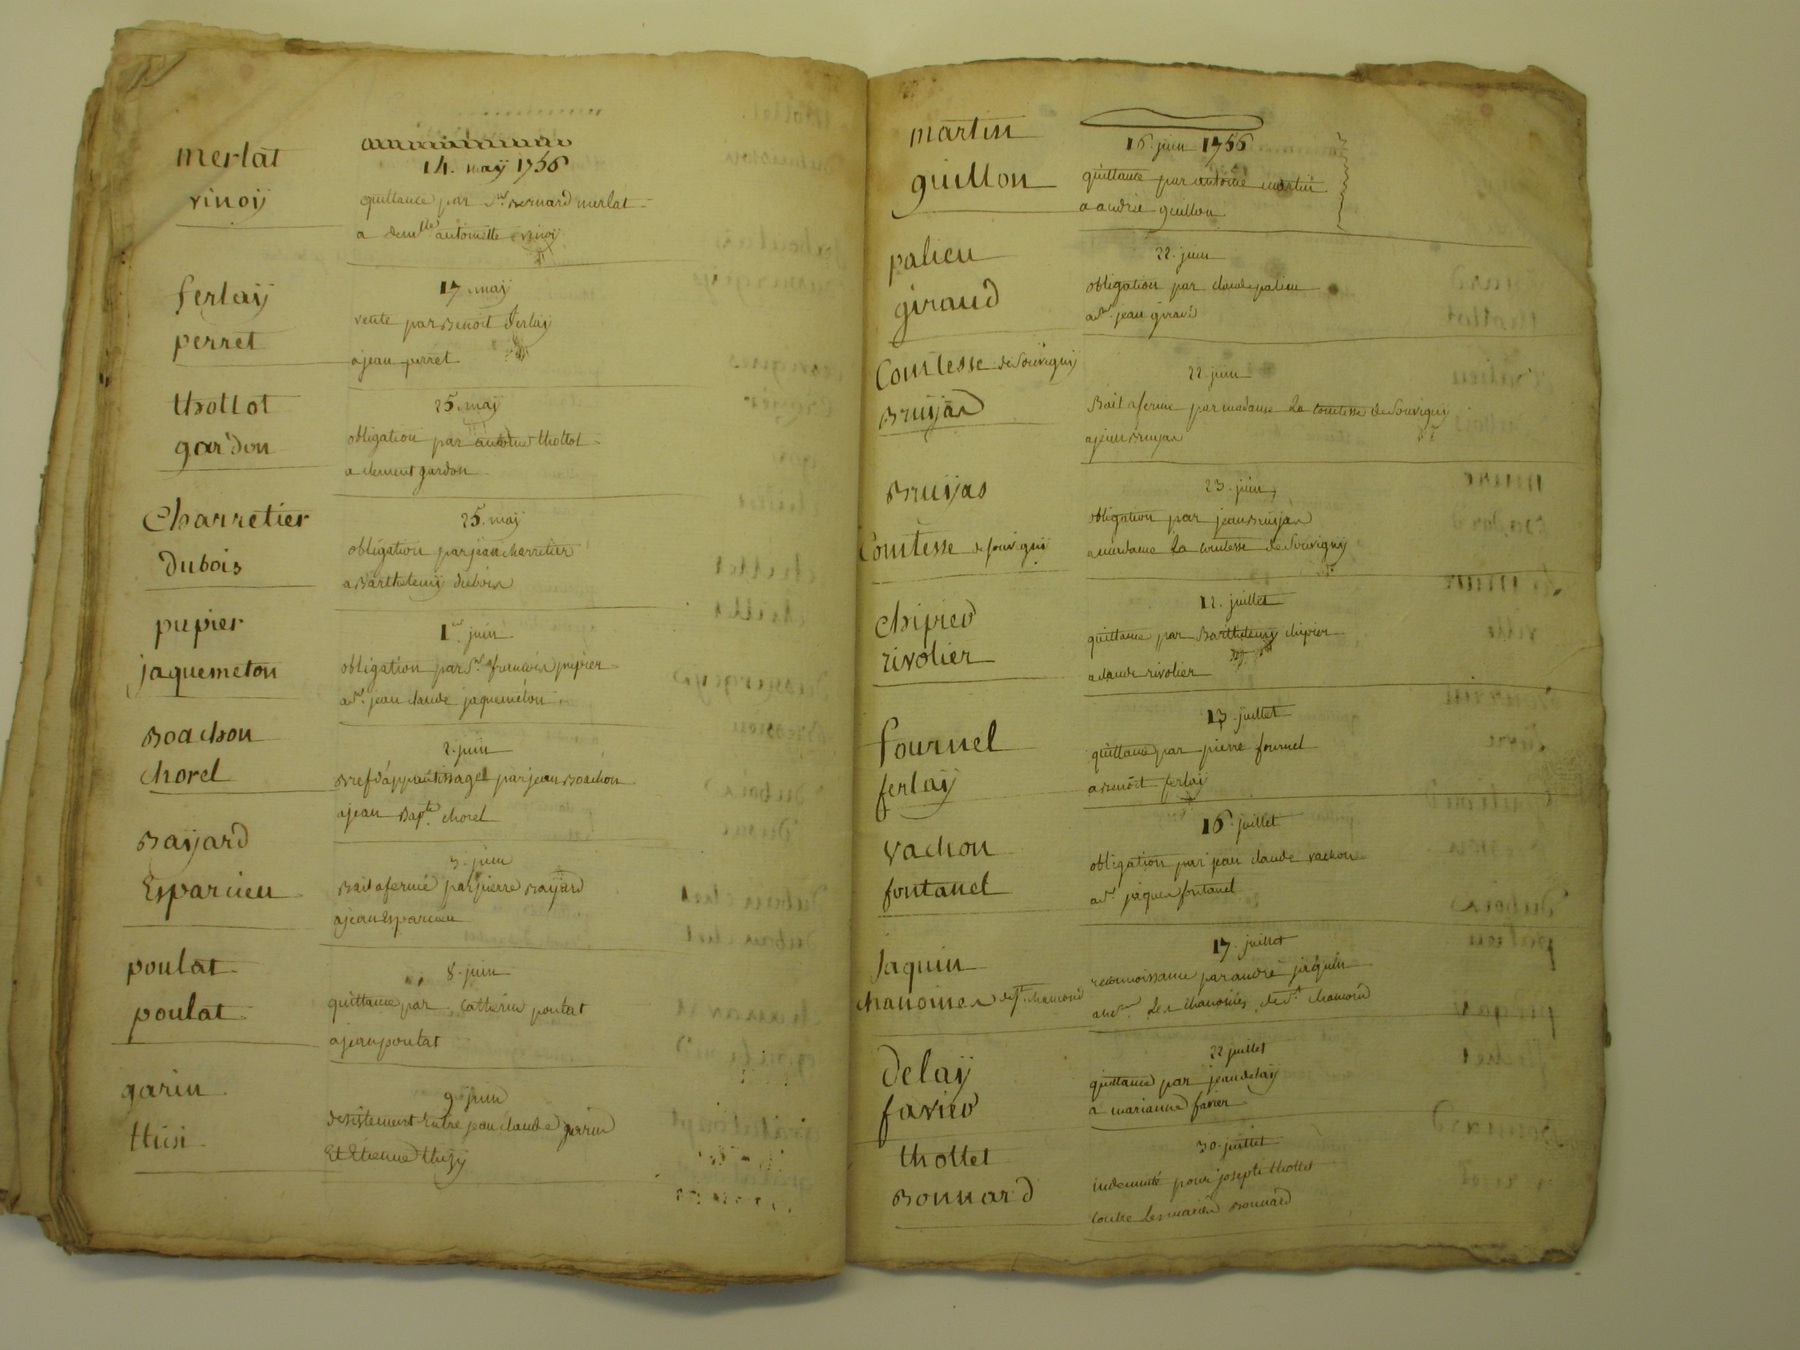 merlat
vinoÿ
14. maÿ 1756
quittance par Sr Bernard merlat
a demlle antoinette vinoÿ
ferlaÿ
perret
17 maÿ
vente par Benoit ferlaÿ
a jean perret
thollot
gardon
25. maÿ
obligation par antoine thollot
a clement gardon
Charretier
dubois
25. maÿ
obligation par jean charretier
a Barthelemÿ dubois
pupier
jaquemeton
1er juin
obligation par Sr françois pupier
a Sr jean claude jaquemeton
Boachon
chorel
2. juin
Bref d'apprentissage par jean Boachon
a jean Bapte chorel
Baÿard
Esparcieu
3. juin
Bail a ferme par pierre Baÿard
a jean Esparcieu
poulat
poulat
8. juin
quittance par Catherine poulat
a jean poulat
garin
thisi
9 juin
desistement Entre jean claude
Et Etienne thizÿ
martin
guillon
16. juin 1756
quittance par antoine martin
a andré guillon
palieu
giraud
22. juin
obligation par claude palieu
a Sr jean giraud
Comtesse de Souvigny
Bruÿas
22. juin
Bail a ferme par madame La comtesse de Souvigny
a jean Bruÿas
Bruÿas
Comtesse de souvigny
23. juin
obligation par jean Bruÿas
a madame La comtesse de Souvigny
chipier
rivolier
12. juillet
quittance par Barthelemy chipier
a claude rivolier
fournel
ferlaÿ
13. juillet
quittance par pierre fournel
a Benoit ferlaÿ
vachon
fontanel
16. juillet
obligation par jean claude vachon
a Sr jaques fontanel
Jaquin
chanoines de St. chamond
17. juillet
reconnoissance par andré jaquin
a Les chanoines de St chamond
delaÿ
favier
22 juillet
quittance par jean delaÿ
a marianne favier
thollet
Bonnard
30. juillet
indemnité pour joseph thollet
contre Les mariés Bonnard